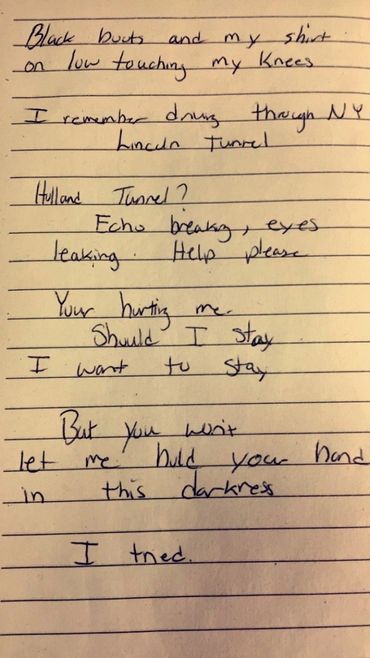 Black boots and my shirt
on low touching my knees
I remember driving through NY
Lincoln Tunnel
Holland Tunnel?
Echo breaking, eyes
leaking. Help please
Your hurting me.
Should I stay
I want to stay
But you won't
let me hold your hand
in this darkness
I tried.